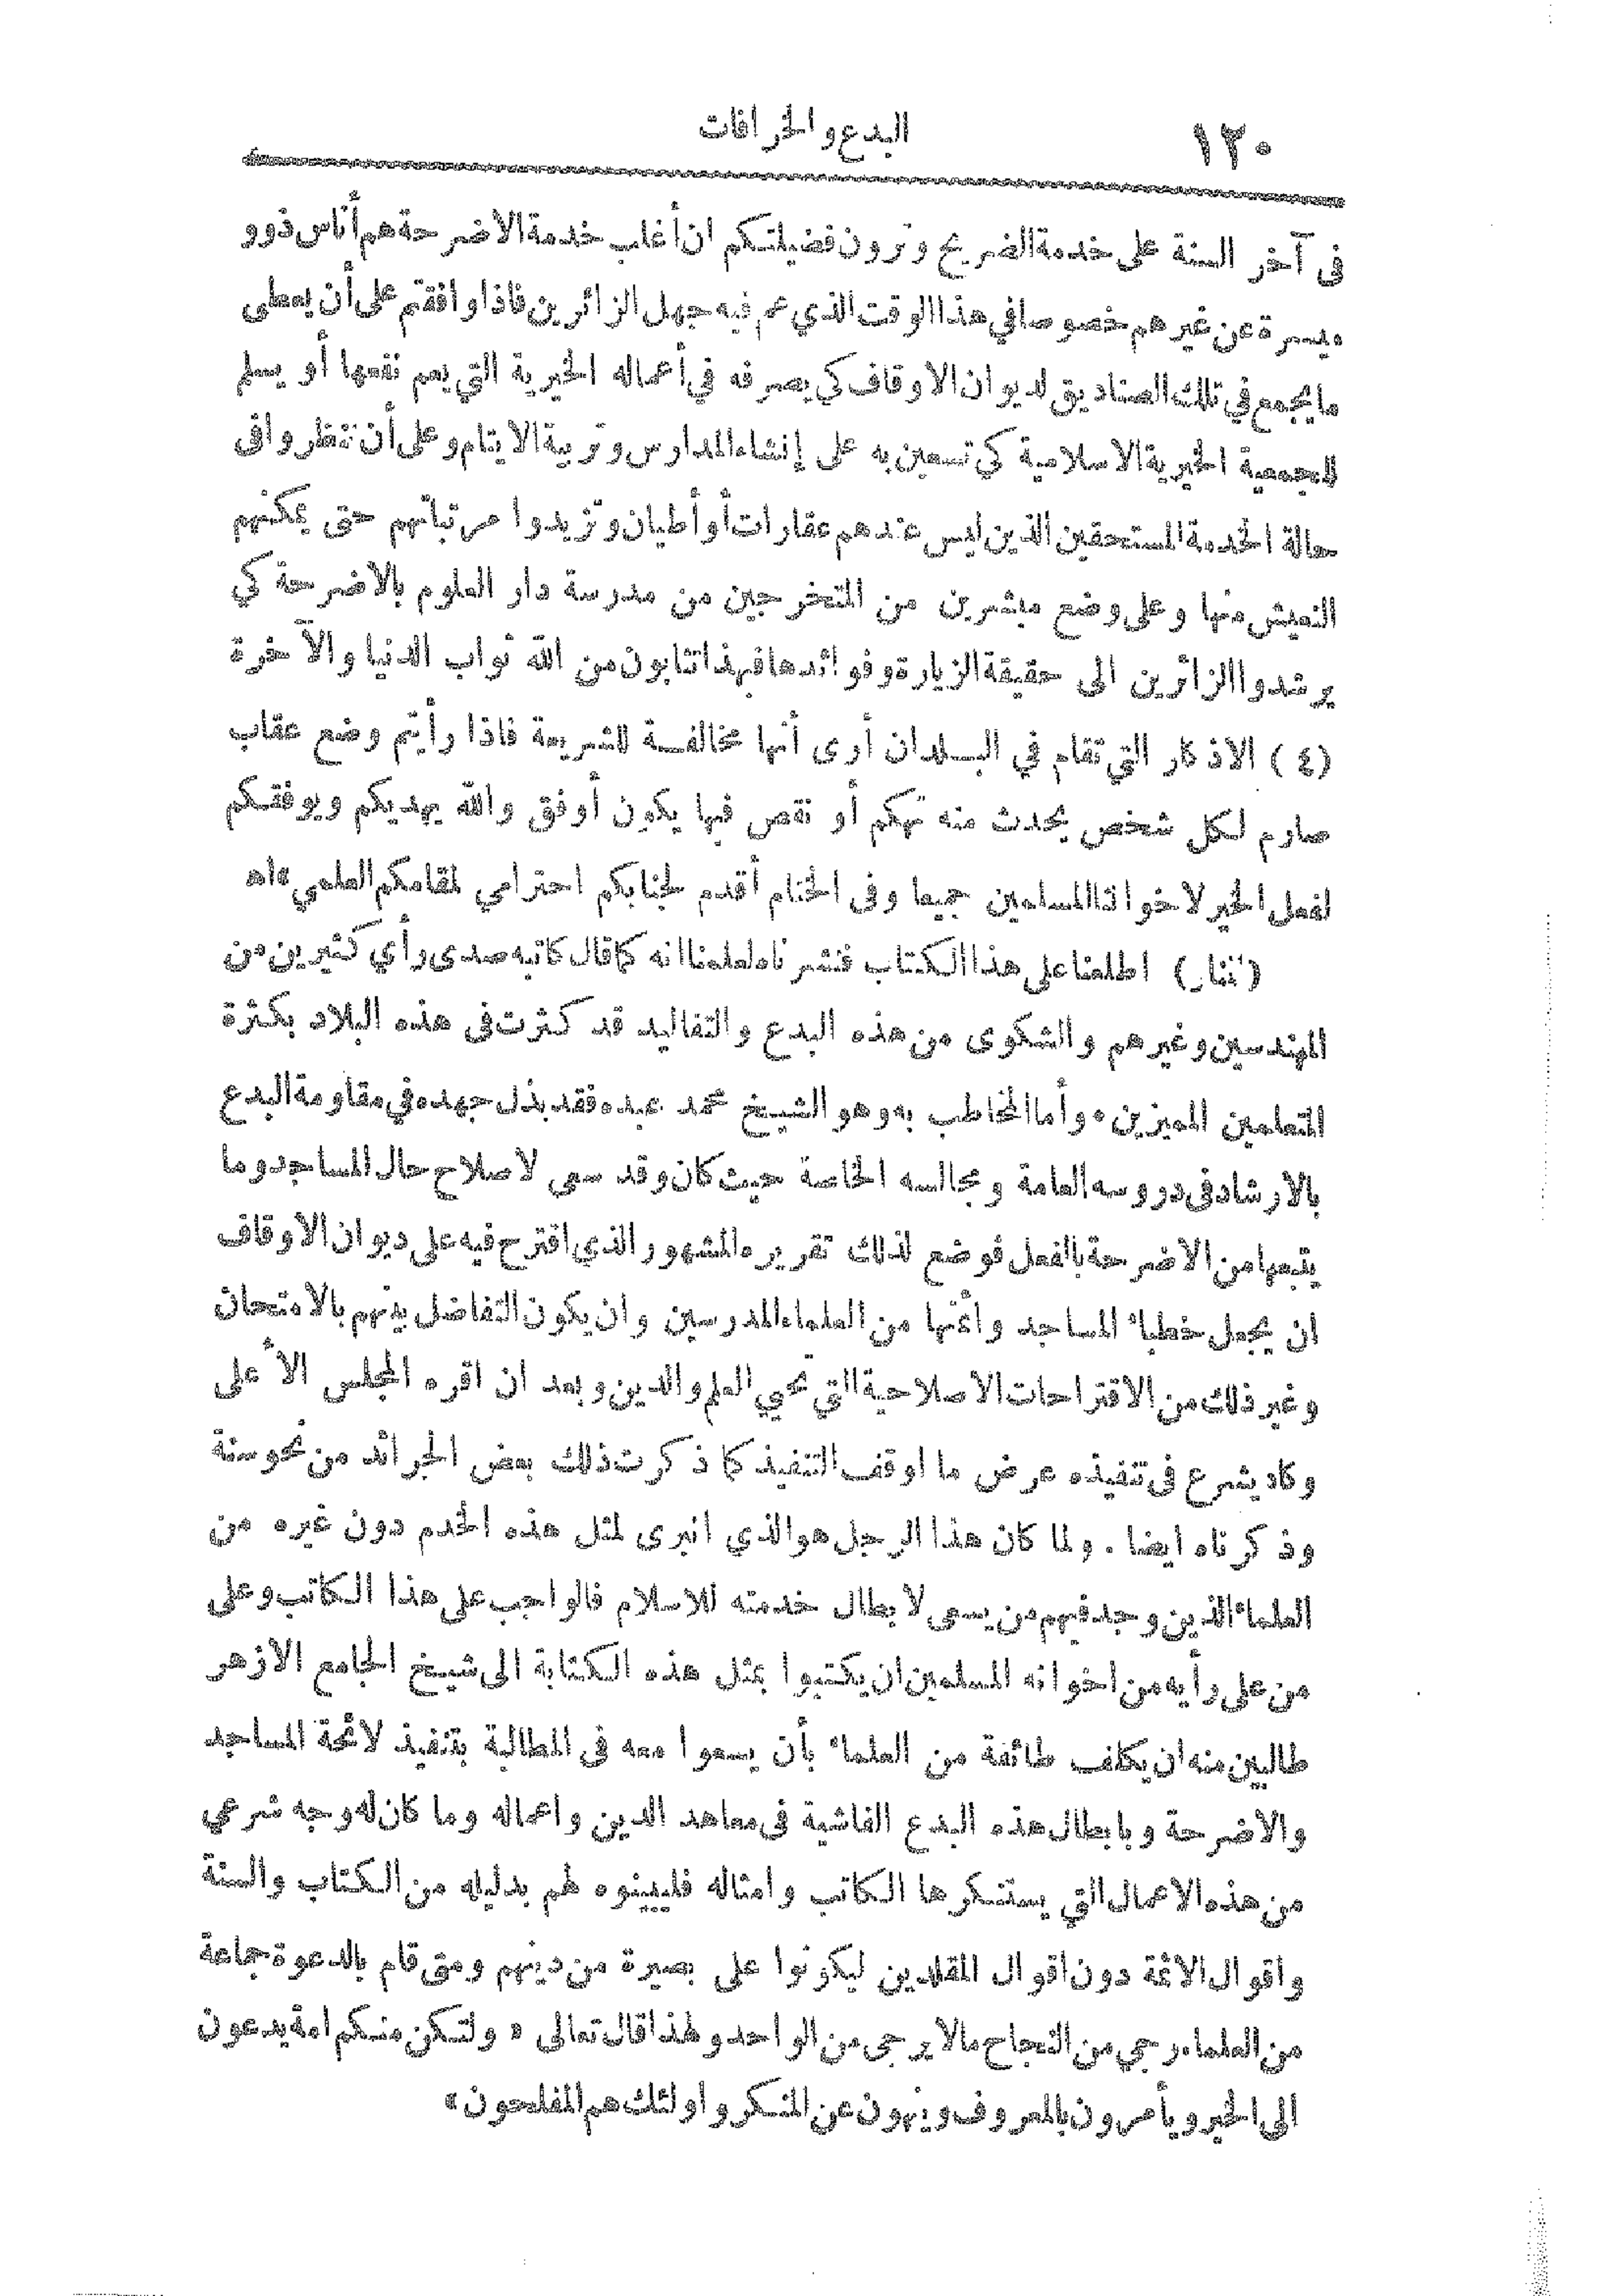 ١٢٠
البدع والخرافات
فى آخر السنة على خدمة الضريح وترون فضيلتكم ان أغلب خدمة الاضرحة هم أناس ذوو
ميسرة عن غيرهم خصوصا في هذا الوقت الذي عم فيه جهل الزائرين فاذا وافقتم على أن يعطى
ما يجمع في تلك الصناديق لديوان الاوقاف كي يصرفه في أعماله الخيرية التي يعم نفعها أو يسلم
للجمعية الخيرية الاسلامية كي تستعين به على إنشاء المدارس وتربية الايتام وعلى أن تنظروا فى
حالة الخدمة المستحقين الذين ليس عندهم عقارات أو أطيان وتزيدوا مرتباتهم حتى يمكنهم
التعيش منها وعلى وضع مبشرين من المتخرجين من مدرسة دار العلوم بالاضرحة كي
يرشدوا الزائرين الى حقيقة الزيارة وفوائدها فبهذا تثابون من الله ثواب الدنيا والآخرة
(٤) الاذكار التي تقام في البلدان أرى أنها مخالفة للشريعة فاذا رأيتم وضع عقاب
صارم لكل شخص يحدث منه تهكم أو نقص فيها يكون أوفق والله يهديكم ويوفقكم
لفعل الخير لاخواننا المسلمين جميعا وفى الختام أقدم لجنابكم احترامي لمقامكم العلمي» اه
(المنار) اطلعنا على هذا الكتاب فنشرناه لعلمنا انه كما قال كاتبه صدى رأي كثيرين من
المهندسين وغيرهم والشكوى من هذه البدع والتقاليد قد كثرت فى هذه البلاد بكثرة
المتعلمين المميزين. وأما المخاطب به وهو الشيخ محمد عبده فقد بذل جهده في مقاومة البدع
بالارشاد فى دروسه العامة ومجالسه الخاصة حيث كان وقد سعى لاصلاح حال المساجد وما
يتبعها من الاضرحة بالفعل فوضع لذلك تقريره المشهور الذي اقترح فيه على ديوان الاوقاف
ان يجعل خطباء المساجد وأئمتها من العلماء المدرسين وان يكون التفاضل بينهم بالامتحان
وغير ذلك من الاقتراحات الاصلاحية التي تحيي العلم والدين وبعد ان اقره المجلس الأعلى
وكاد يشرع فى تنفيذه عرض ما اوقف التنفيذ كما ذكرت ذلك بعض الجرائد من نحو سنة
وذكرناه ايضا. ولما كان هذا الرجل هو الذي انبرى لمثل هذه الخدم دون غيره من
العلماء الذين وجد فيهم من يسعى لابطال خدمته للاسلام فالواجب على هذا الكاتب وعلى
من على رأيه من اخوانه المسلمين ان يكتبوا بمثل هذه الكتابة الى شيخ الجامع الازهر
طالبين منه ان يكلف طائفة من العلماء بأن يسعوا معه فى المطالبة بتنفيذ لائحة المساجد
والاضرحة وبابطال هذه البدع الفاشية فى معاهد الدين واعماله وما كان له وجه شرعي
من هذه الاعمال التي يستنكرها الكاتب وامثاله فليبينوه لهم بدليله من الكتاب والسنة
واقوال الائمة دون اقوال المقلدين ليكونوا على بصيرة من دينهم ومتى قام بالدعوة جماعة
من العلماء رجي من النجاح مالا يرجى من الواحد ولهذا قال تعالى « ولتكن منكم امة يدعون
الى الخير ويأمرون بالمعروف وينهون عن المنكر واولئك هم المفلحون »